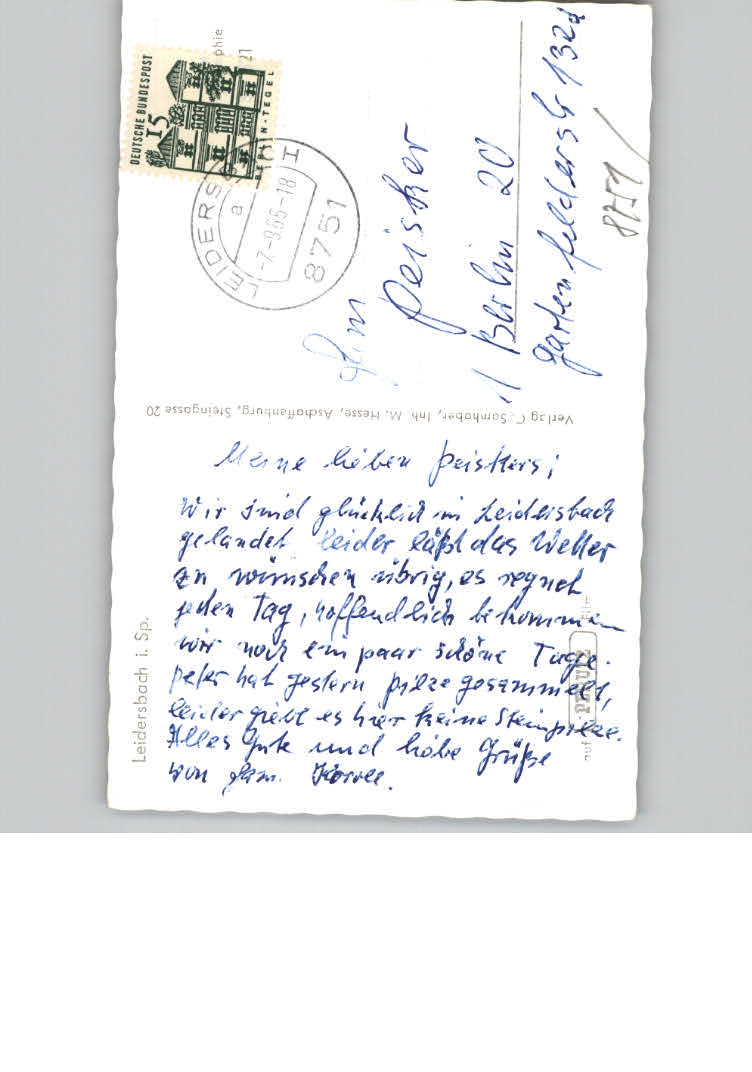 DEUTSCHE BUNDESPOST
15
BERLIN-TEGEL
phie
21
LEIDERS
a
-7.-9.65-18
8751
Fam
Peisker
1 Berlin 20
Gartenfelderstr 132d
8751
Verlag C. Samhaber, Inh. M. Hesse, Aschaffenburg, Steingasse 20
Meine lieben Peiskers;
Wir sind glücklich in Leidersbach
gelandet leider läßt das Wetter
zu wünschen übrig, es regnet
jeden Tag, hoffendlich bekommen
wir noch ein paar schöne Tage.
Peter hat gestern Pilze gesammelt,
leider giebt es hier keine Steinpilze.
Alles Gute und liebe Grüße
von Fam.
Leidersbach i. Sp.
auf PERUTZ Film